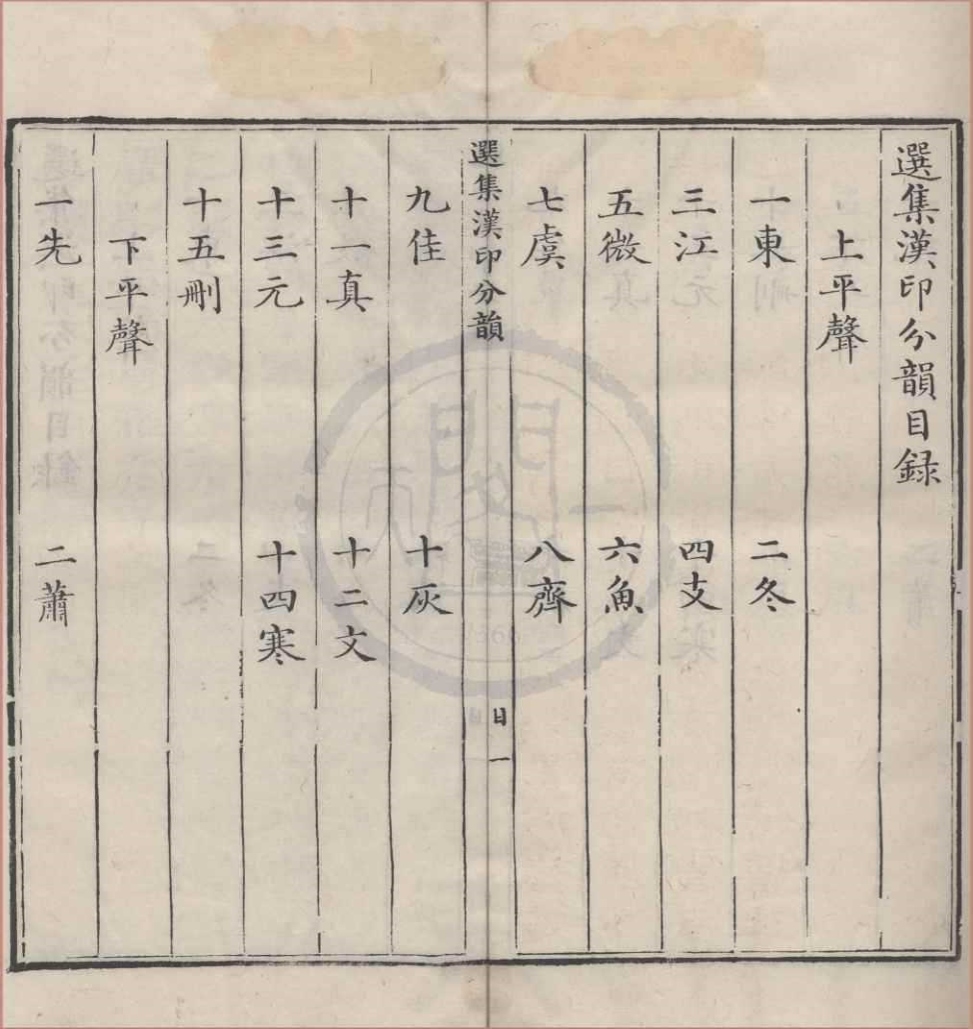 選集漢印分韻目録
上平聲
一東 二冬
三江 四支
五微 六魚
七虞 八齊
選集漢印分韻
目一
九佳 十灰
十一真 十二文
十三元 十四寒
十五刪
下平聲
一先 二蕭